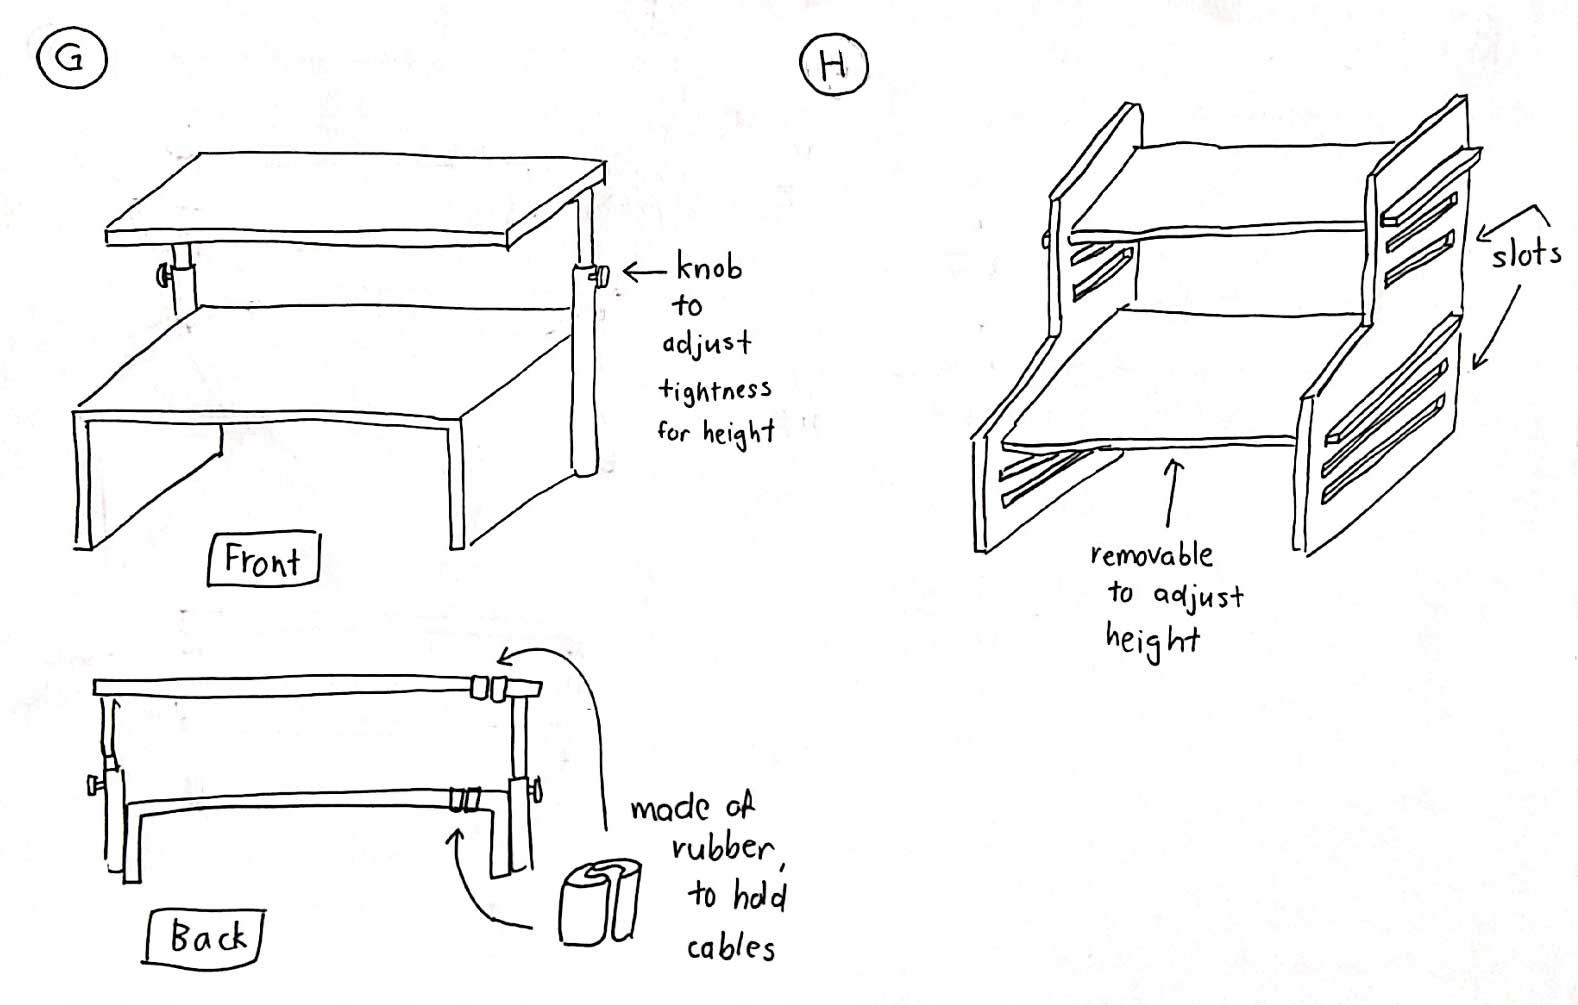 G
knob
to
adjust
tightness
for height
Front
made of
rubber,
to hold
cables
Back
H
slots
removable
to adjust
height